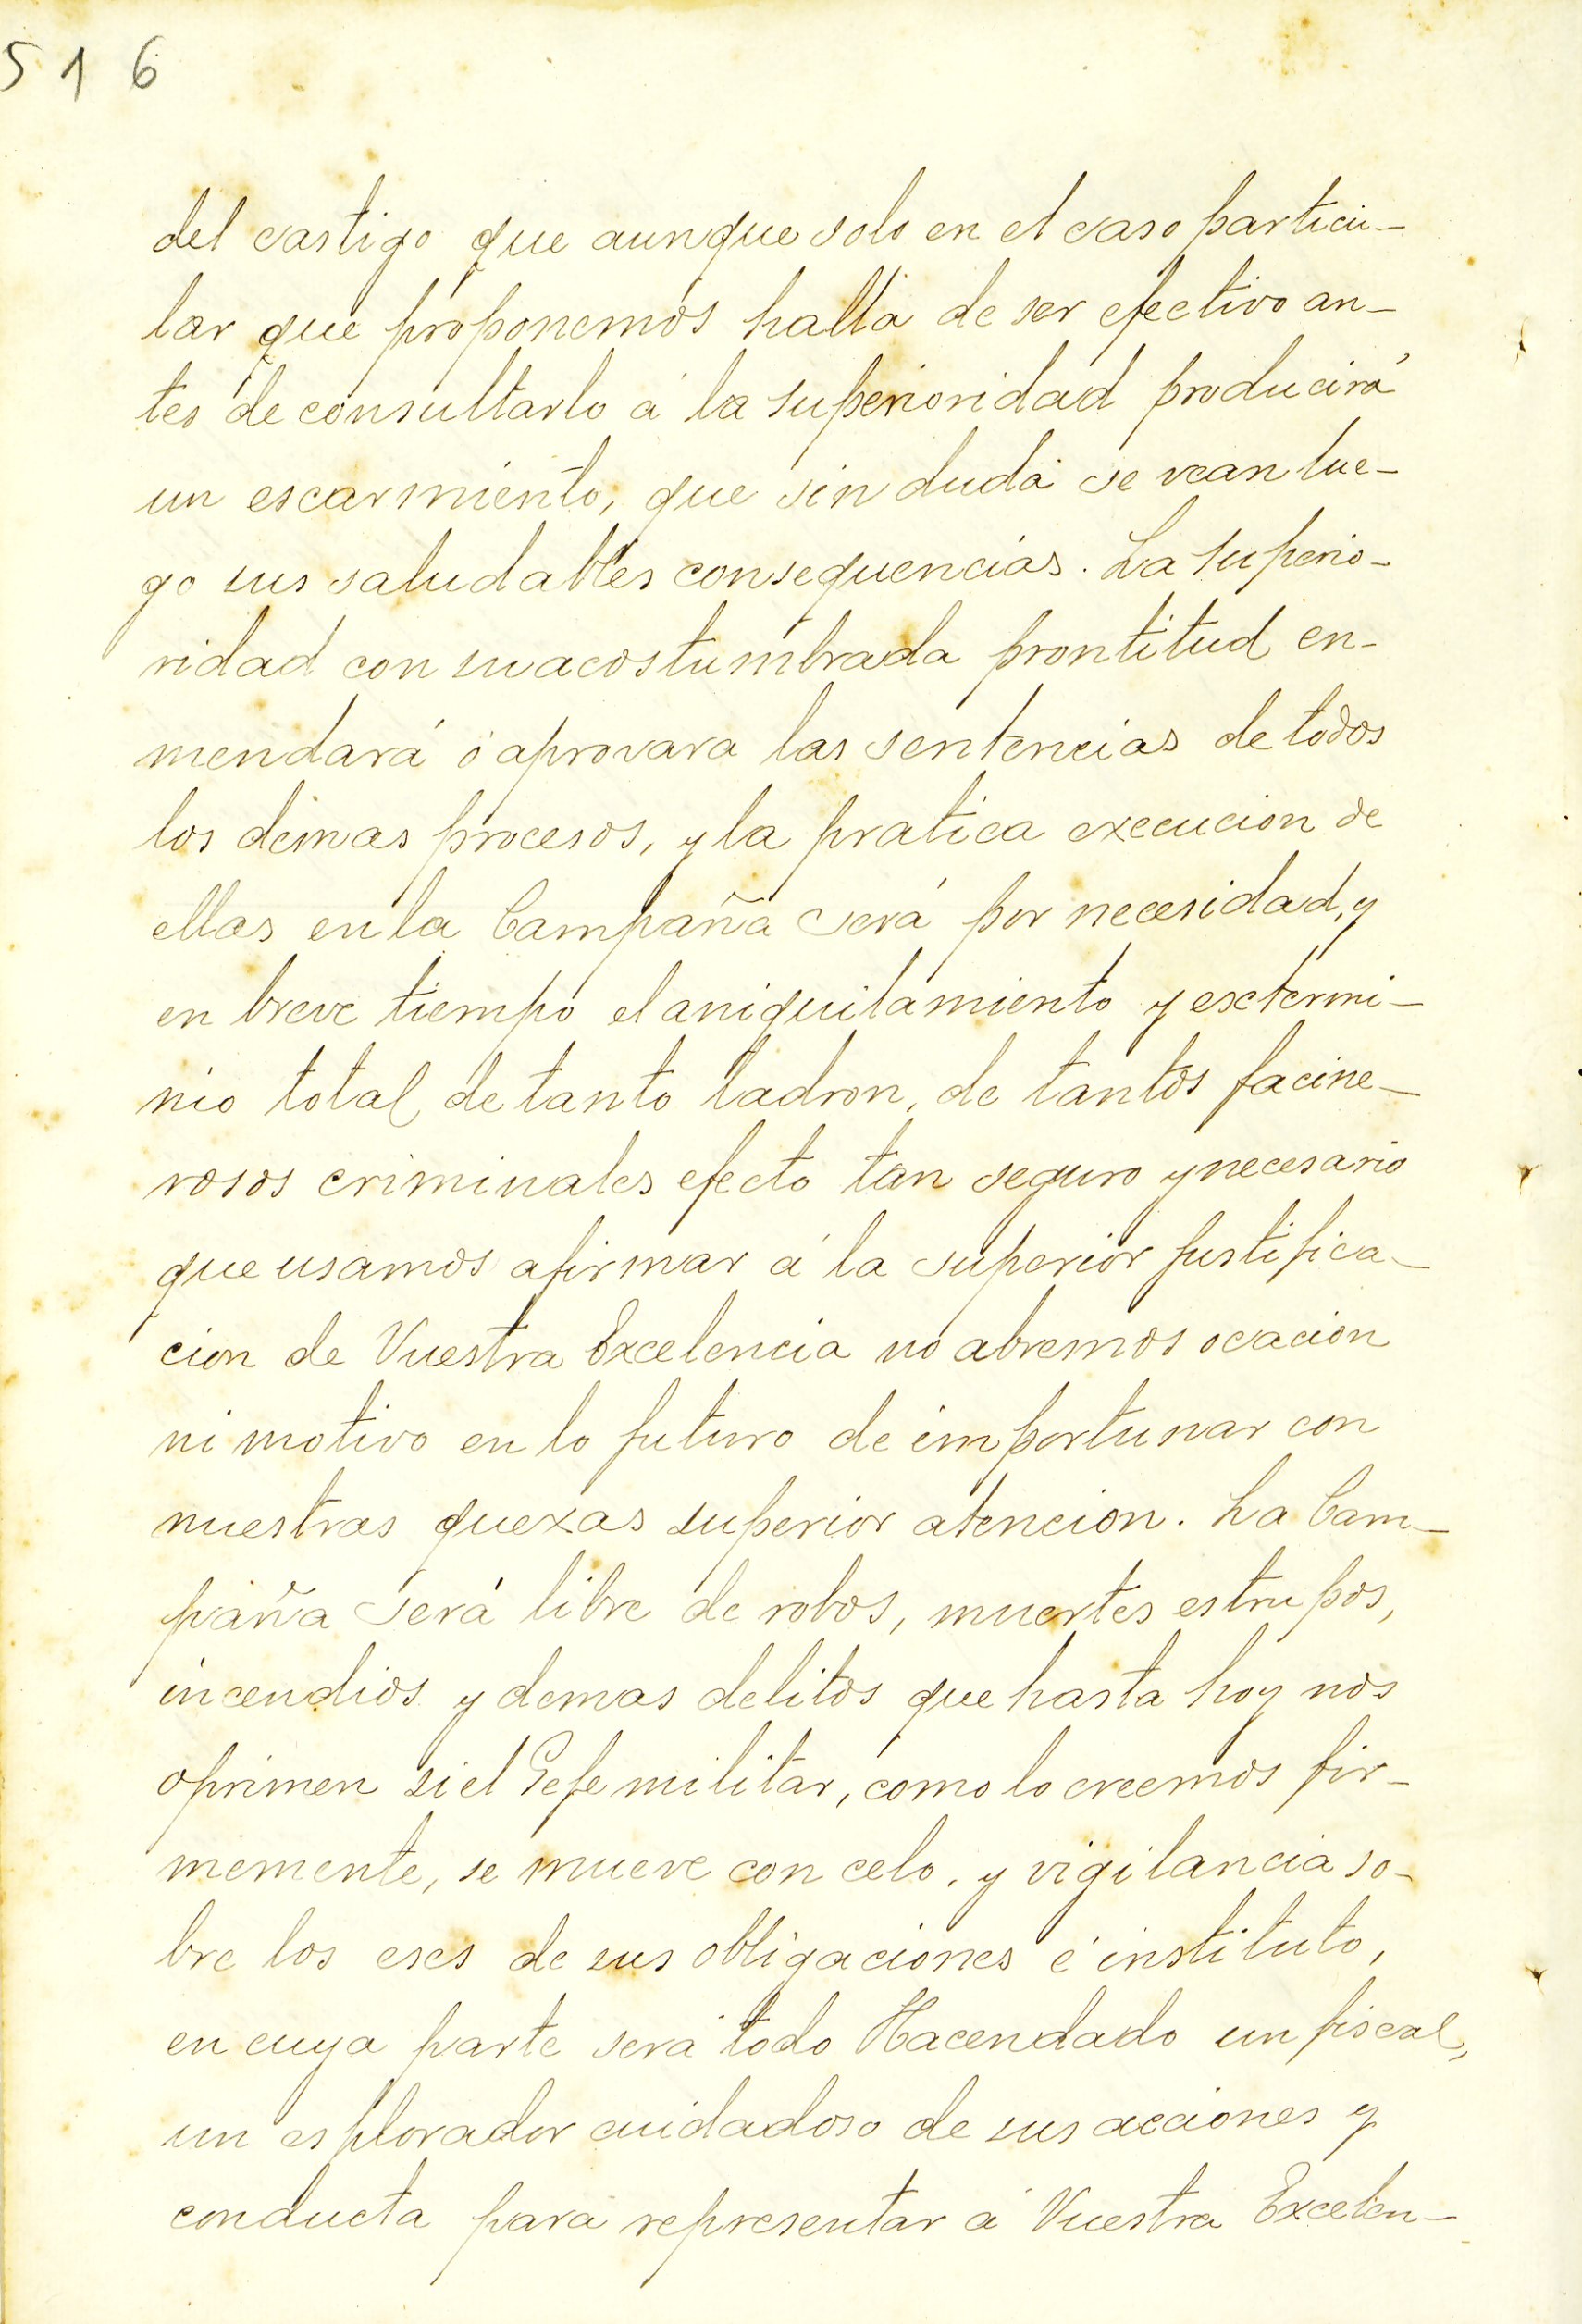 516
del castigo que aunque solo en el caso particu-
lar que proponemos halla de ser efectivo an-
tes de consultarlo á la superioridad producirá
un escarmiento, que sin duda se vean lue-
go sus saludables consequencias. La superio-
ridad con su acostumbrada prontitud en-
mendará ó aprovara las sentencias de todos
los demas procesos, y la pratica execucion de
ellas en la Campaña será por necesidad, y
en breve tiempo el aniquilamiento y extermi-
nio total de tanto ladron, de tantos facine-
rosos criminales efecto tan seguro y necesario
que usamos afirmar á la superior justifica-
cion de Vuestra Excelencia no abremos ocacion
ni motivo en lo futuro de importunar con
nuestras quexas superior atencion. La Cam-
paña será libre de robos, muertes estrupos,
incendios y demas delitos que hasta hoy nos
oprimen si el Gefe militar, como lo creemos fir-
memente, se mueve con celo, y vigilancia so-
bre los eses de sus obligaciones é instituto,
en cuya parte será todo Hacendado un fiscal,
un esplorador cuidadoso de sus acciones y
conducta para representar á Vuestra Excelen-